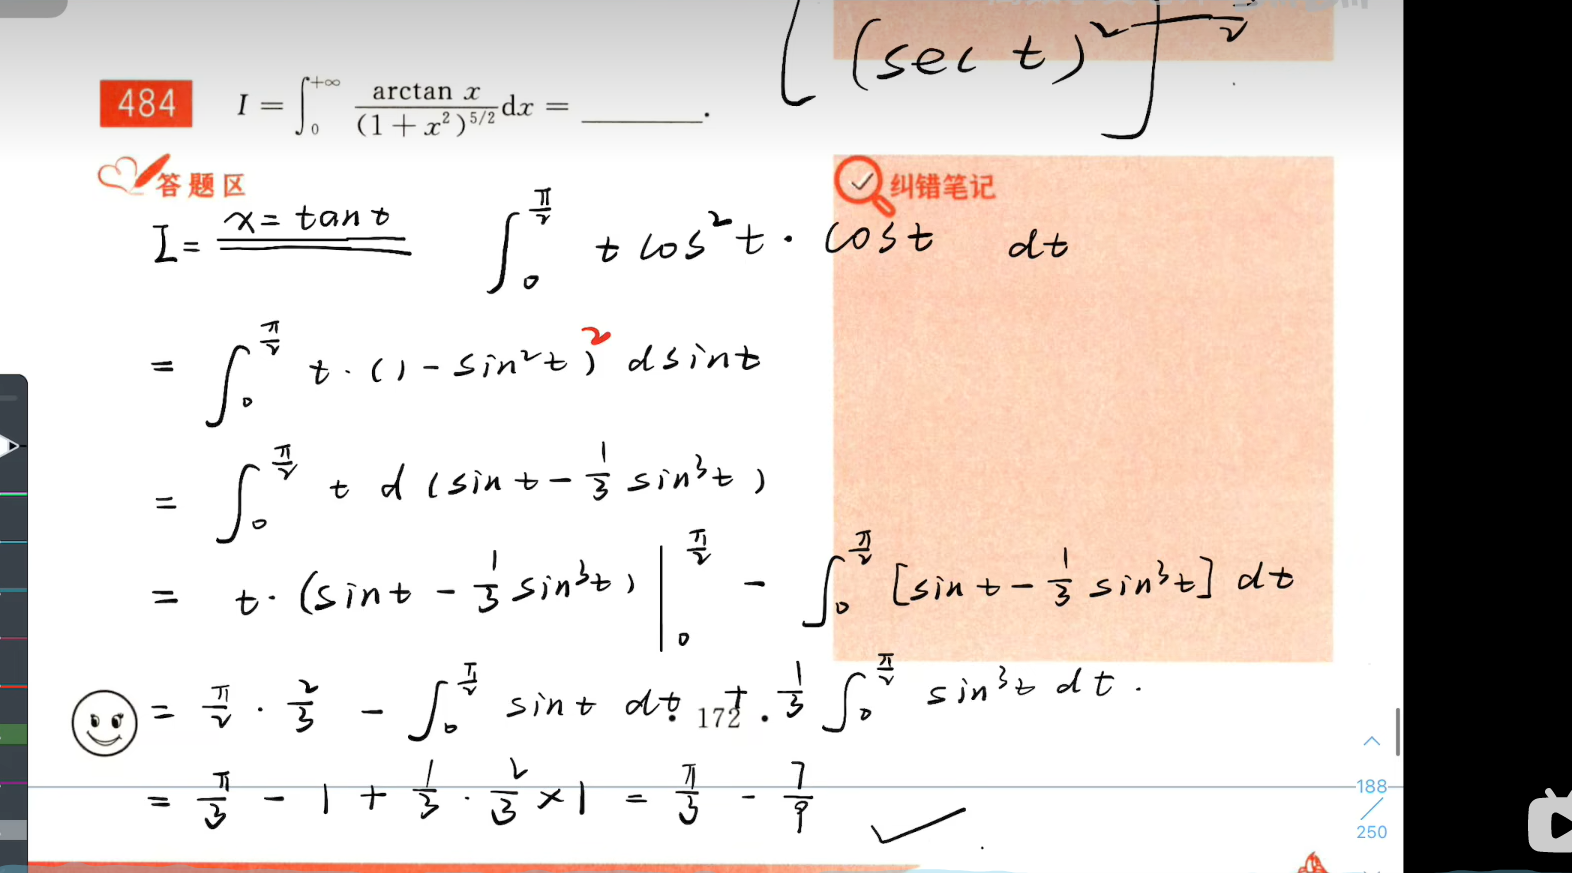 [(sec t)²]^
2
484 I = ∫₀^{+∞} arctan x / (1 + x²)^{5/2} dx = ________.
答题区
纠错笔记
I = x = tan t ∫₀^{π/2} t cos² t · cos t dt
= ∫₀^{π/2} t · (1 - sin² t)² d sin t
= ∫₀^{π/2} t d (sin t - 1/3 sin³ t)
= t · (sin t - 1/3 sin³ t) |₀^{π/2} - ∫₀^{π/2} [sin t - 1/3 sin³ t] dt
= π/2 · 2/3 - ∫₀^{π/2} sin t dt + 1/3 ∫₀^{π/2} sin³ t dt.
· 172 ·
= π/3 - 1 + 1/3 · 2/3 × 1 = π/3 - 7/9
188
250